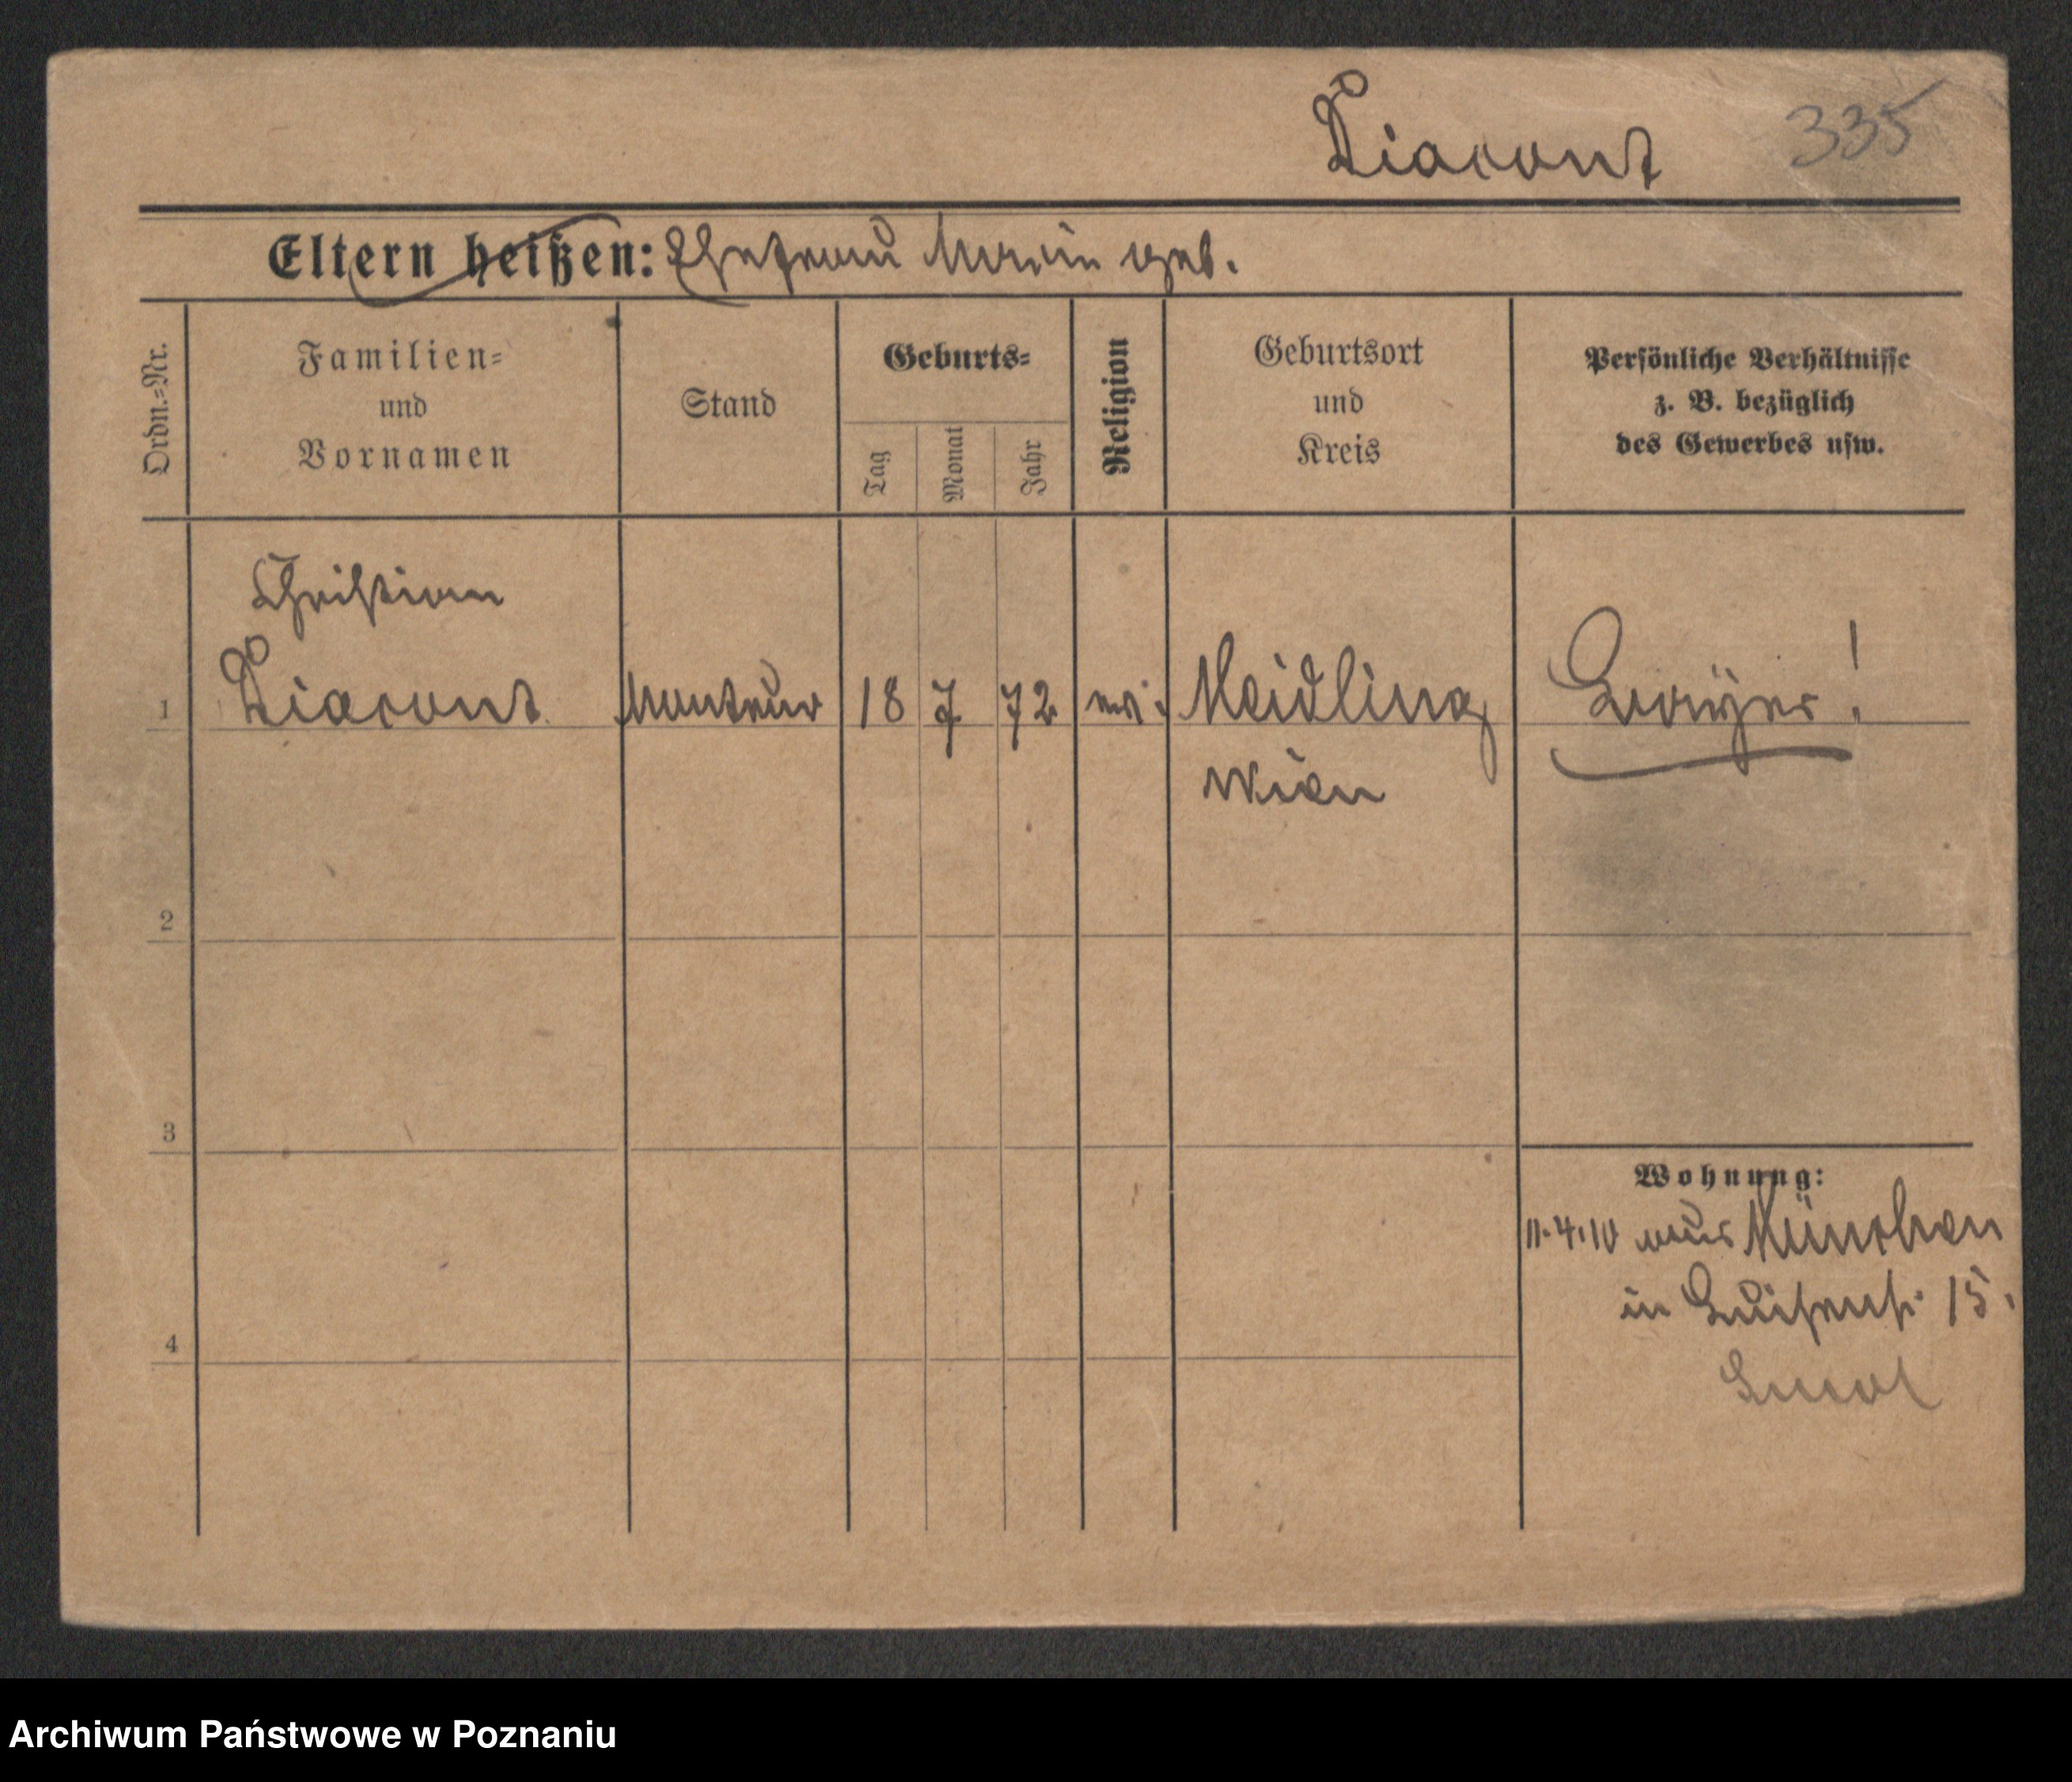 Diacont 335
Eltern heißen: Ehefrau Maria geb.
Ordn.=Nr.
Familien=
und
Vornamen
Stand
Geburts=
Tag
Monat
Jahr
Religion
Geburtsort
und
Kreis
Persönliche Verhältnisse
z. B. bezüglich
des Gewerbes usw.
Christian
1 Diacont Monteur 18 7 72 ev. Meidling !
Wien
2
3
Wohnung:
11.4.10 aus München
in Luisenst. 15.
4
Archiwum Państwowe w Poznaniu